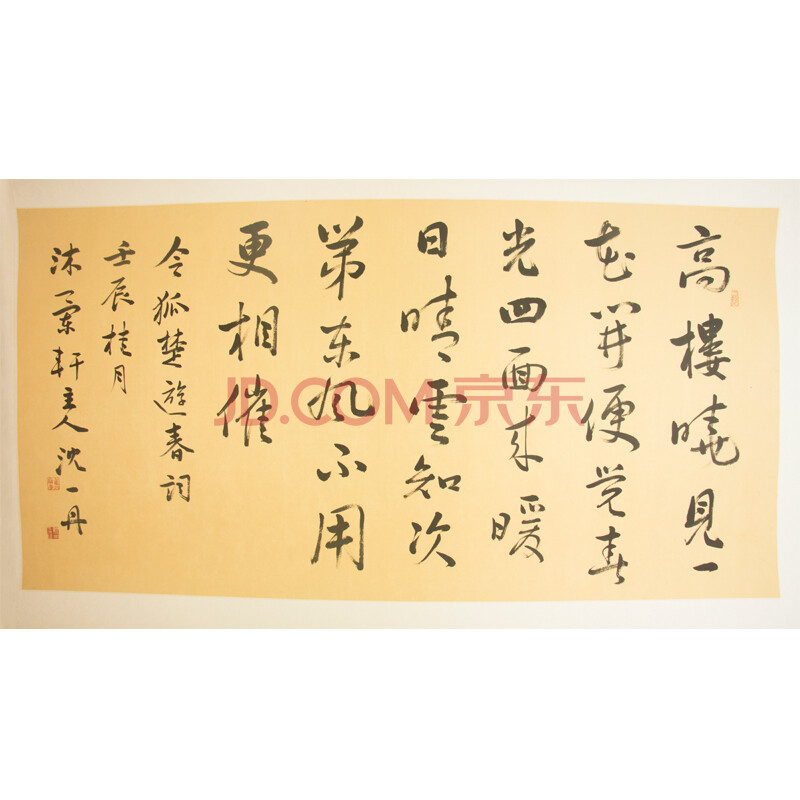 高樓曉見一
花開便覺春
光四面来暖
日晴雲知次
第东风不用
更相催
令狐楚遊春詞
壬辰桂月
沐蘭軒主人沈一丹
JD.COM 京东